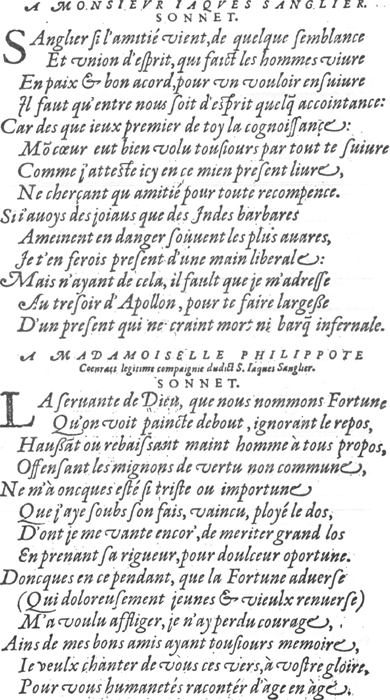 A MONSIEVR IAQVES SANGLIER.
SONNET.
SAnglier si l'amitié vient, de quelque semblance
Et vnion d'esprit, qui faict les hommes viure
En paix & bon acord, pour vn vouloir ensuiure
Il faut qu'entre nous soit d'esprit quelq accointance:
Car des que ieux premier de toy la cognoissance:
Mõ cœur eut bien volu tousiours par tout te suiure
Comme j'atteste icy en ce mien present liure,
Ne cherçant qu amitié pour toute recompence.
Si i'auoys des joiaus que des Indes barbares
Ameinent en danger souuent les plus auares,
Je t'en ferois present d'une main liberale:
Mais n'ayant de cela, il fault que je m'adresse
Au tresoir d'Apollon, pour te faire largesse
D'un present qui ne craint mort ni barq infernale.
A MADAMOISELLE PHILIPPOTE
Coenraets legitime compaignie dudict S. Iaques Sanglier.
SONNET.
LA seruante de Dieu, que nous nommons Fortune
Qu'on voit paincte debout, ignorant le repos,
Haussãt ou rebaissant maint homme à tous propos,
Offensant les mignons de vertu non commune,
Ne m'a oncques esté si triste ou importune
Que j'aye soubs son fais, vaincu, ployé le dos,
D'ont je me vante encor', de meriter grand los
En prenant sa rigueur, pour doulceur oportune.
Doncques en ce pendant, que la Fortune aduerse
(Qui doloreusement jeunes & vieulx renuerse)
M'a voulu affliger, je n'ay perdu courage,
Ains de mes bons amis ayant tousiours memoire,
Ie veulx chanter de vous ces vers, à vostre gloire,
Pour vous humanetés racontér d'age en âge,